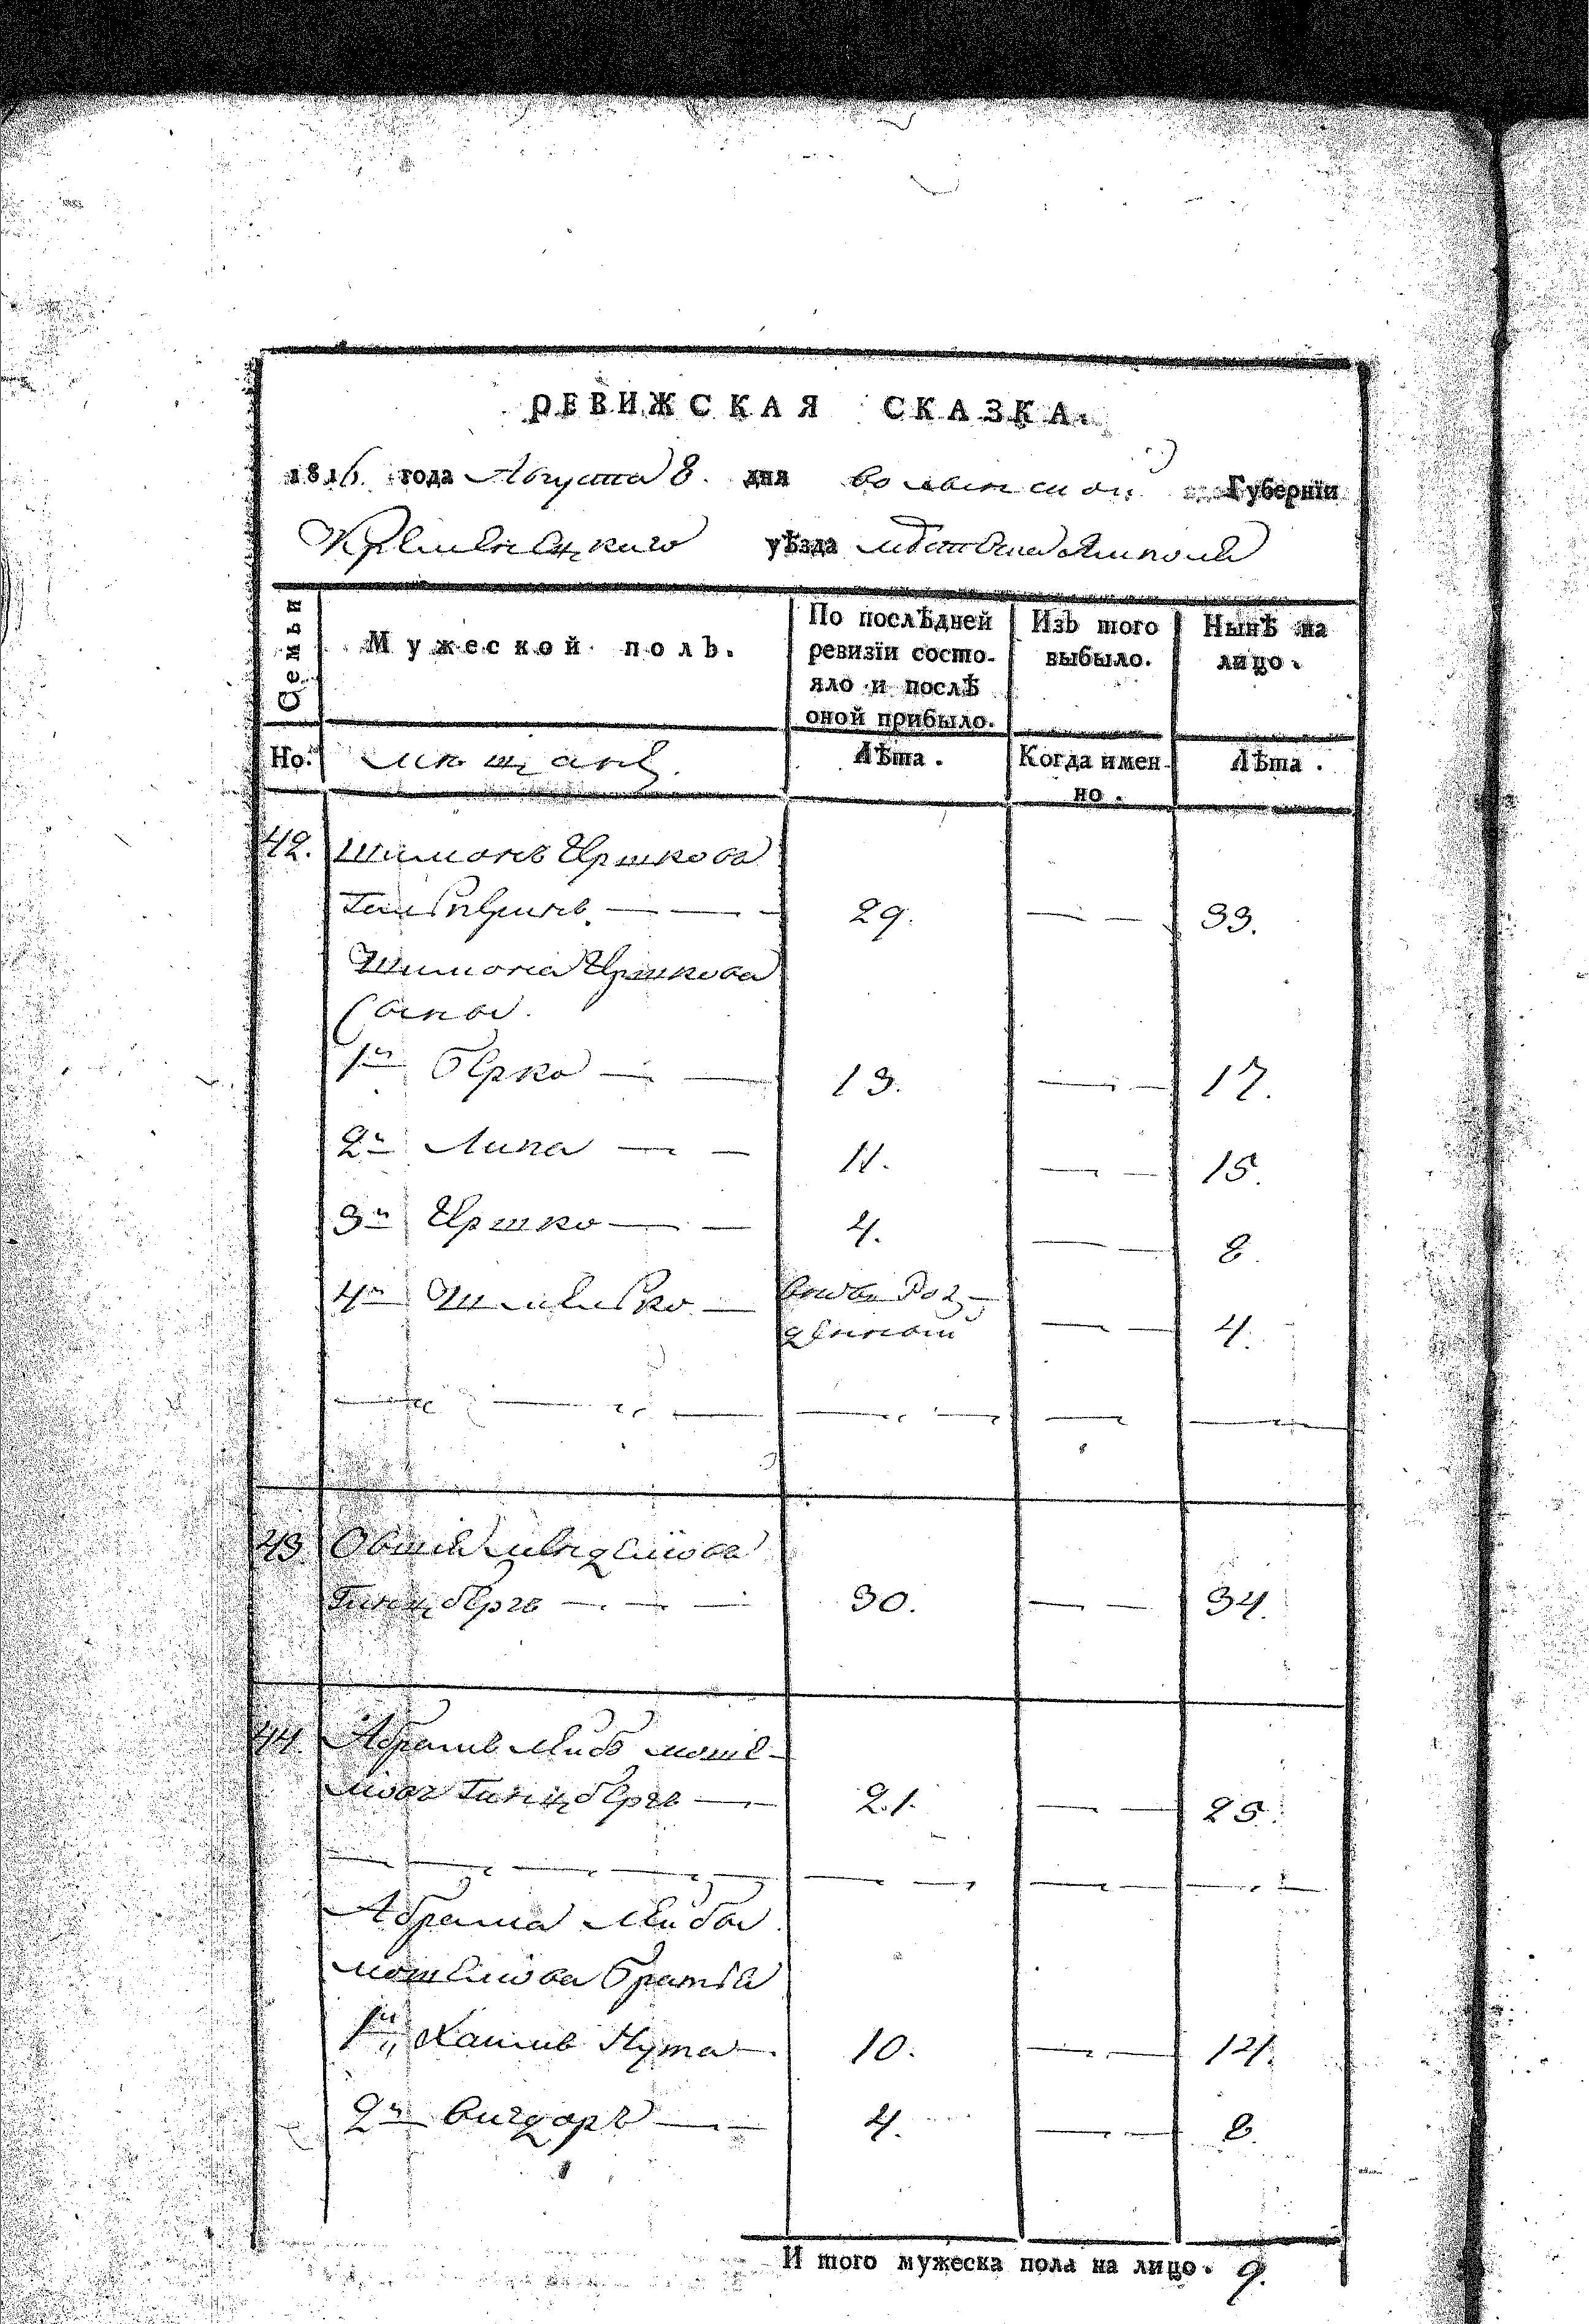 РЕВИЖСКАЯ СКАЗКА.
1816. года Августа 8. дня Волынской Губернїи
Кременецкого уѣзда местечка Ямполя
Семьи
Мужеской полъ.
По послѣдней ревизїи состояло и послѣ оной прибыло.
Изъ того выбыло.
Нынѣ на лицо.
Но. мещанъ.
Лѣта.
Когда имен-
но.
Лѣта.
42. Шимонъ Ершкова
29. — — 33.
Шимона Ершкова
Сыны.
1й Берко — — 13. — — 17.
2й Липа — — 11. — — 15.
3й Ершко — — 4. — — 8.
4й Шмелько — вновь рож-
денный — — 4.
43 Овшей Менделiова
Гинцберг — — — 30. — — 34.
44. Абрамъ Лейб Моше-
Гинцбергъ — 21. — — 25.
Абрама Лейба
Мошелiова братья
1й Хаимъ Нута — 10. — — 14.
2й Вигдоръ — — 4. — — 8.
И того мужеска пола на лицо. 9.